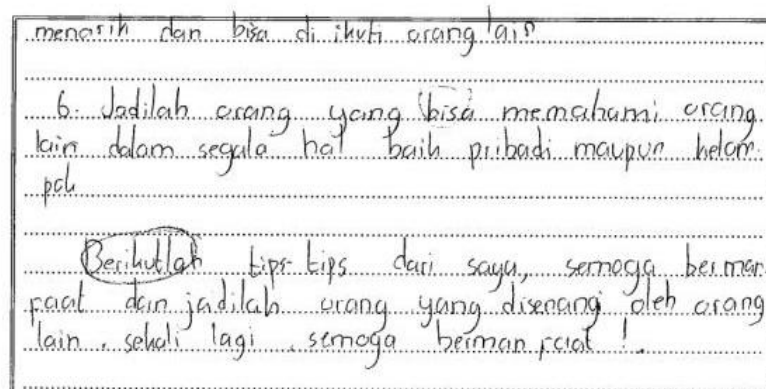 menarik dan bisa di ikuti orang lain
6. Jadilah orang yang bisa memahami orang
lain dalam segala hal baik pribadi maupun kelom
pok
Berikutlah tips-tips dari saya, semoga berman
faat dan jadilah orang yang disenangi oleh orang
lain. sekali lagi, semoga berman faat !.